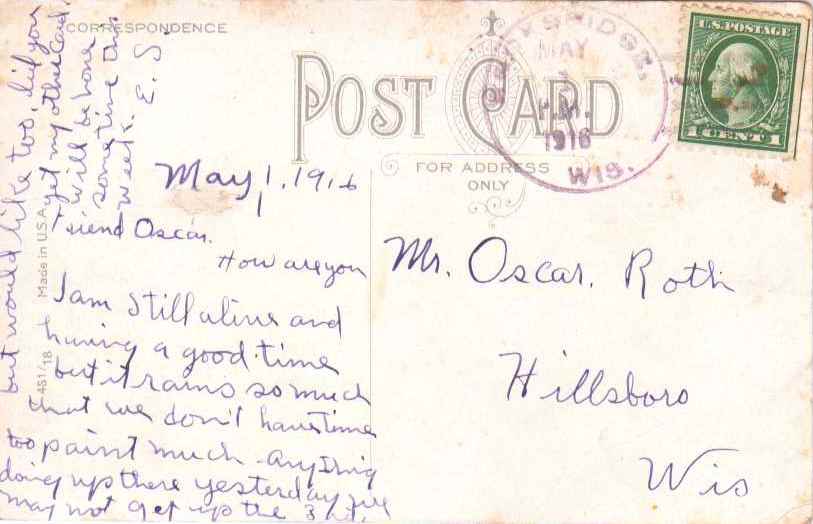 CORRESPONDENCE
POST CARD
FOR ADDRESS
ONLY
MAY
P.M.
1916
WIS.
U.S. POSTAGE
1 CENT 1
May 1, 1916
Friend Oscar.
How are you
I am still alive and
having a good time
but it rains so much
that we don't have time
too paint much. anything
doing up there yesterday we
may not get up the 3 rd.
but would like too, did you
get my other card.
will be home
sometime this
week. E. S.
Mr. Oscar. Roth
Hillsboro
Wis
481/18 Made in U.S.A.